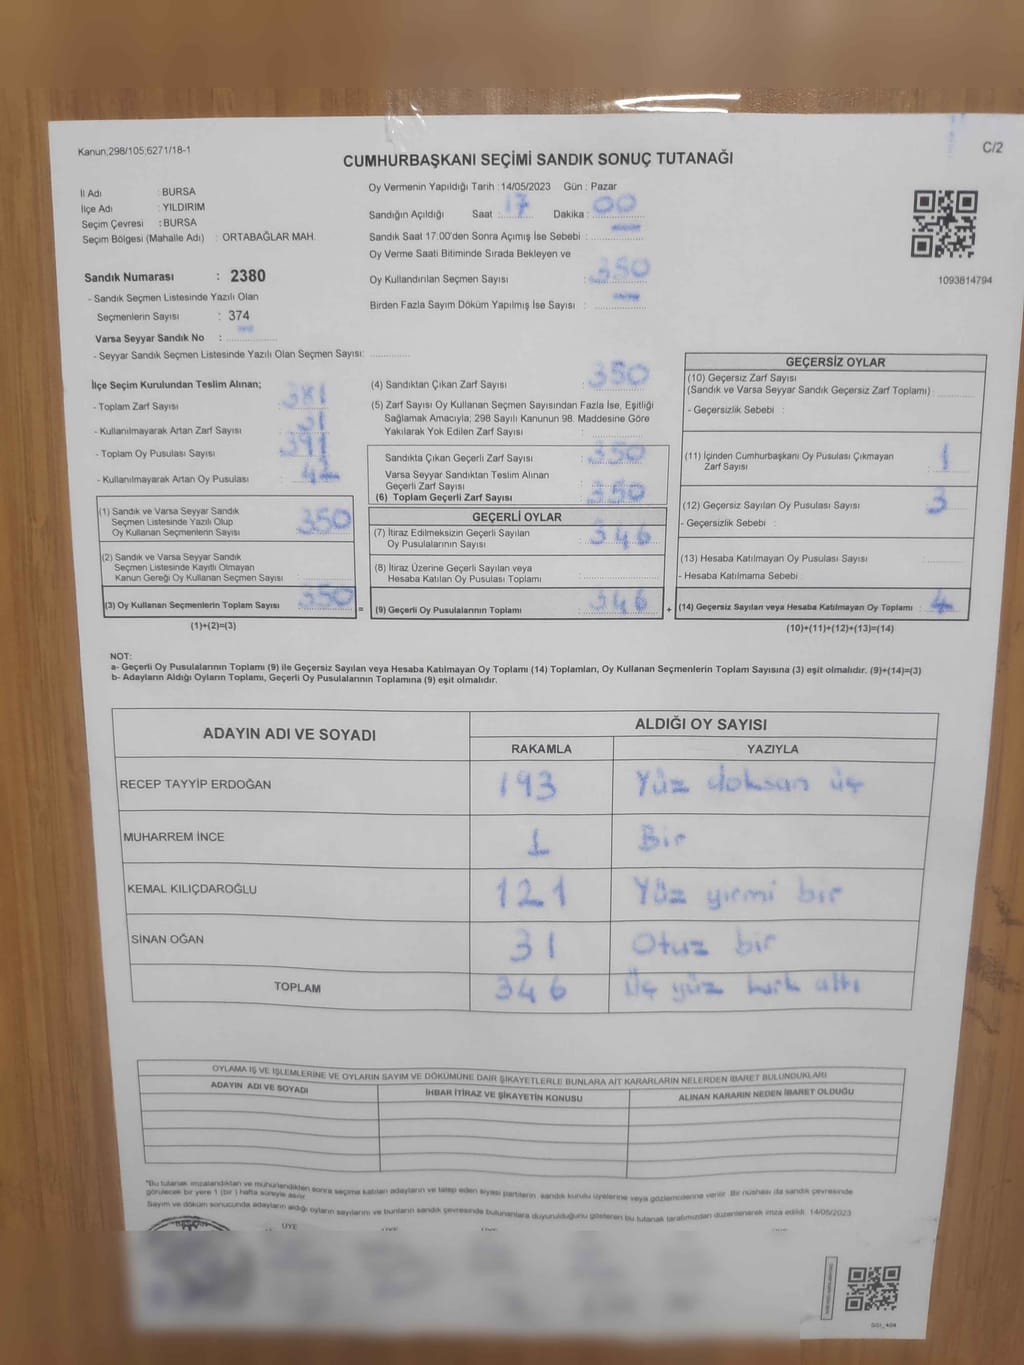 Kanun;298/105;6271/18-1
C/2
CUMHURBAŞKANI SEÇİMİ SANDIK SONUÇ TUTANAĞI
İl Adı : BURSA
İlçe Adı : YILDIRIM
Seçim Çevresi : BURSA
Seçim Bölgesi (Mahalle Adı) : ORTABAĞLAR MAH.
Oy Vermenin Yapıldığı Tarih :14/05/2023 Gün : Pazar
Sandığın Açıldığı Saat : 17 Dakika : 00
Sandık Saat 17:00'den Sonra Açımış İse Sebebi :
Oy Verme Saati Bitiminde Sırada Bekleyen ve
Oy Kullandırılan Seçmen Sayısı : 350
Birden Fazla Sayım Döküm Yapılmış İse Sayısı :
1093814794
Sandık Numarası : 2380
- Sandık Seçmen Listesinde Yazılı Olan
Seçmenlerin Sayısı : 374
Varsa Seyyar Sandık No :
- Seyyar Sandık Seçmen Listesinde Yazılı Olan Seçmen Sayısı:
İlçe Seçim Kurulundan Teslim Alınan;
- Toplam Zarf Sayısı : 381
- Kullanılmayarak Artan Zarf Sayısı : 31
- Toplam Oy Pusulası Sayısı : 391
- Kullanılmayarak Artan Oy Pusulası : 42
(1) Sandık ve Varsa Seyyar Sandık
Seçmen Listesinde Yazılı Olup
Oy Kullanan Seçmenlerin Sayısı : 350
(2) Sandık ve Varsa Seyyar Sandık
Seçmen Listesinde Kayıtlı Olmayan
Kanun Gereği Oy Kullanan Seçmen Sayısı :
(3) Oy Kullanan Seçmenlerin Toplam Sayısı : 350 =
(1)+(2)=(3)
(4) Sandıktan Çıkan Zarf Sayısı : 350
(5) Zarf Sayısı Oy Kullanan Seçmen Sayısından Fazla İse, Eşitliği
Sağlamak Amacıyla; 298 Sayılı Kanunun 98. Maddesine Göre
Yakılarak Yok Edilen Zarf Sayısı :
Sandıkta Çıkan Geçerli Zarf Sayısı : 350
Varsa Seyyar Sandıktan Teslim Alınan
Geçerli Zarf Sayısı :
(6) Toplam Geçerli Zarf Sayısı : 350
GEÇERLİ OYLAR
(7) İtiraz Edilmeksizin Geçerli Sayılan
Oy Pusulalarının Sayısı : 346
(8) İtiraz Üzerine Geçerli Sayılan veya
Hesaba Katılan Oy Pusulası Toplamı :
(9) Geçerli Oy Pusulalarının Toplamı : 346 +
GEÇERSİZ OYLAR
(10) Geçersiz Zarf Sayısı
(Sandık ve Varsa Seyyar Sandık Geçersiz Zarf Toplamı) :
- Geçersizlik Sebebi :
(11) İçinden Cumhurbaşkanı Oy Pusulası Çıkmayan
Zarf Sayısı : 1
(12) Geçersiz Sayılan Oy Pusulası Sayısı : 3
- Geçersizlik Sebebi :
(13) Hesaba Katılmayan Oy Pusulası Sayısı
- Hesaba Katılmama Sebebi :
(14) Geçersiz Sayılan veya Hesaba Katılmayan Oy Toplamı : 4
(10)+(11)+(12)+(13)=(14)
NOT:
a- Geçerli Oy Pusulalarının Toplamı (9) ile Geçersiz Sayılan veya Hesaba Katılmayan Oy Toplamı (14) Toplamları, Oy Kullanan Seçmenlerin Toplam Sayısına (3) eşit olmalıdır. (9)+(14)=(3)
b- Adayların Aldığı Oyların Toplamı, Geçerli Oy Pusulalarının Toplamına (9) eşit olmalıdır.
ADAYIN ADI VE SOYADI ALDIĞI OY SAYISI
RAKAMLA YAZIYLA
RECEP TAYYİP ERDOĞAN 193 Yüz doksan üç
MUHARREM İNCE 1 Bir
KEMAL KILIÇDAROĞLU 121 Yüz yirmi bir
SİNAN OĞAN 31 Otuz bir
TOPLAM 346 Üç yüz kırk altı
OYLAMA İŞ VE İŞLEMLERİNE VE OYLARIN SAYIM VE DÖKÜMÜNE DAİR ŞİKAYETLERLE BUNLARA AİT KARARLARIN NELERDEN İBARET BULUNDUKLARI
ADAYIN ADI VE SOYADI İHBAR İTİRAZ VE ŞİKAYETİN KONUSU ALINAN KARARIN NEDEN İBARET OLDUĞU
"Bu tutanak imzalandıktan ve mühürlendikten sonra seçime katılan adayların ve talep eden siyasi partilerin sandık kurulu üyelerine veya gözlemcilerine verilir. Bir nüshası da sandık çevresinde
görülecek bir yere 1 (bir ) hafta süreyle asılır.
Sayım ve döküm sonucunda adayların aldığı oyların sayılarını ve bunların sandık çevresinde bulunanlara duyurulduğunu gösteren bu tutanak tarafımızdan düzenlenerek imza edildi. 14/05/2023
BAŞKAN ÜYE